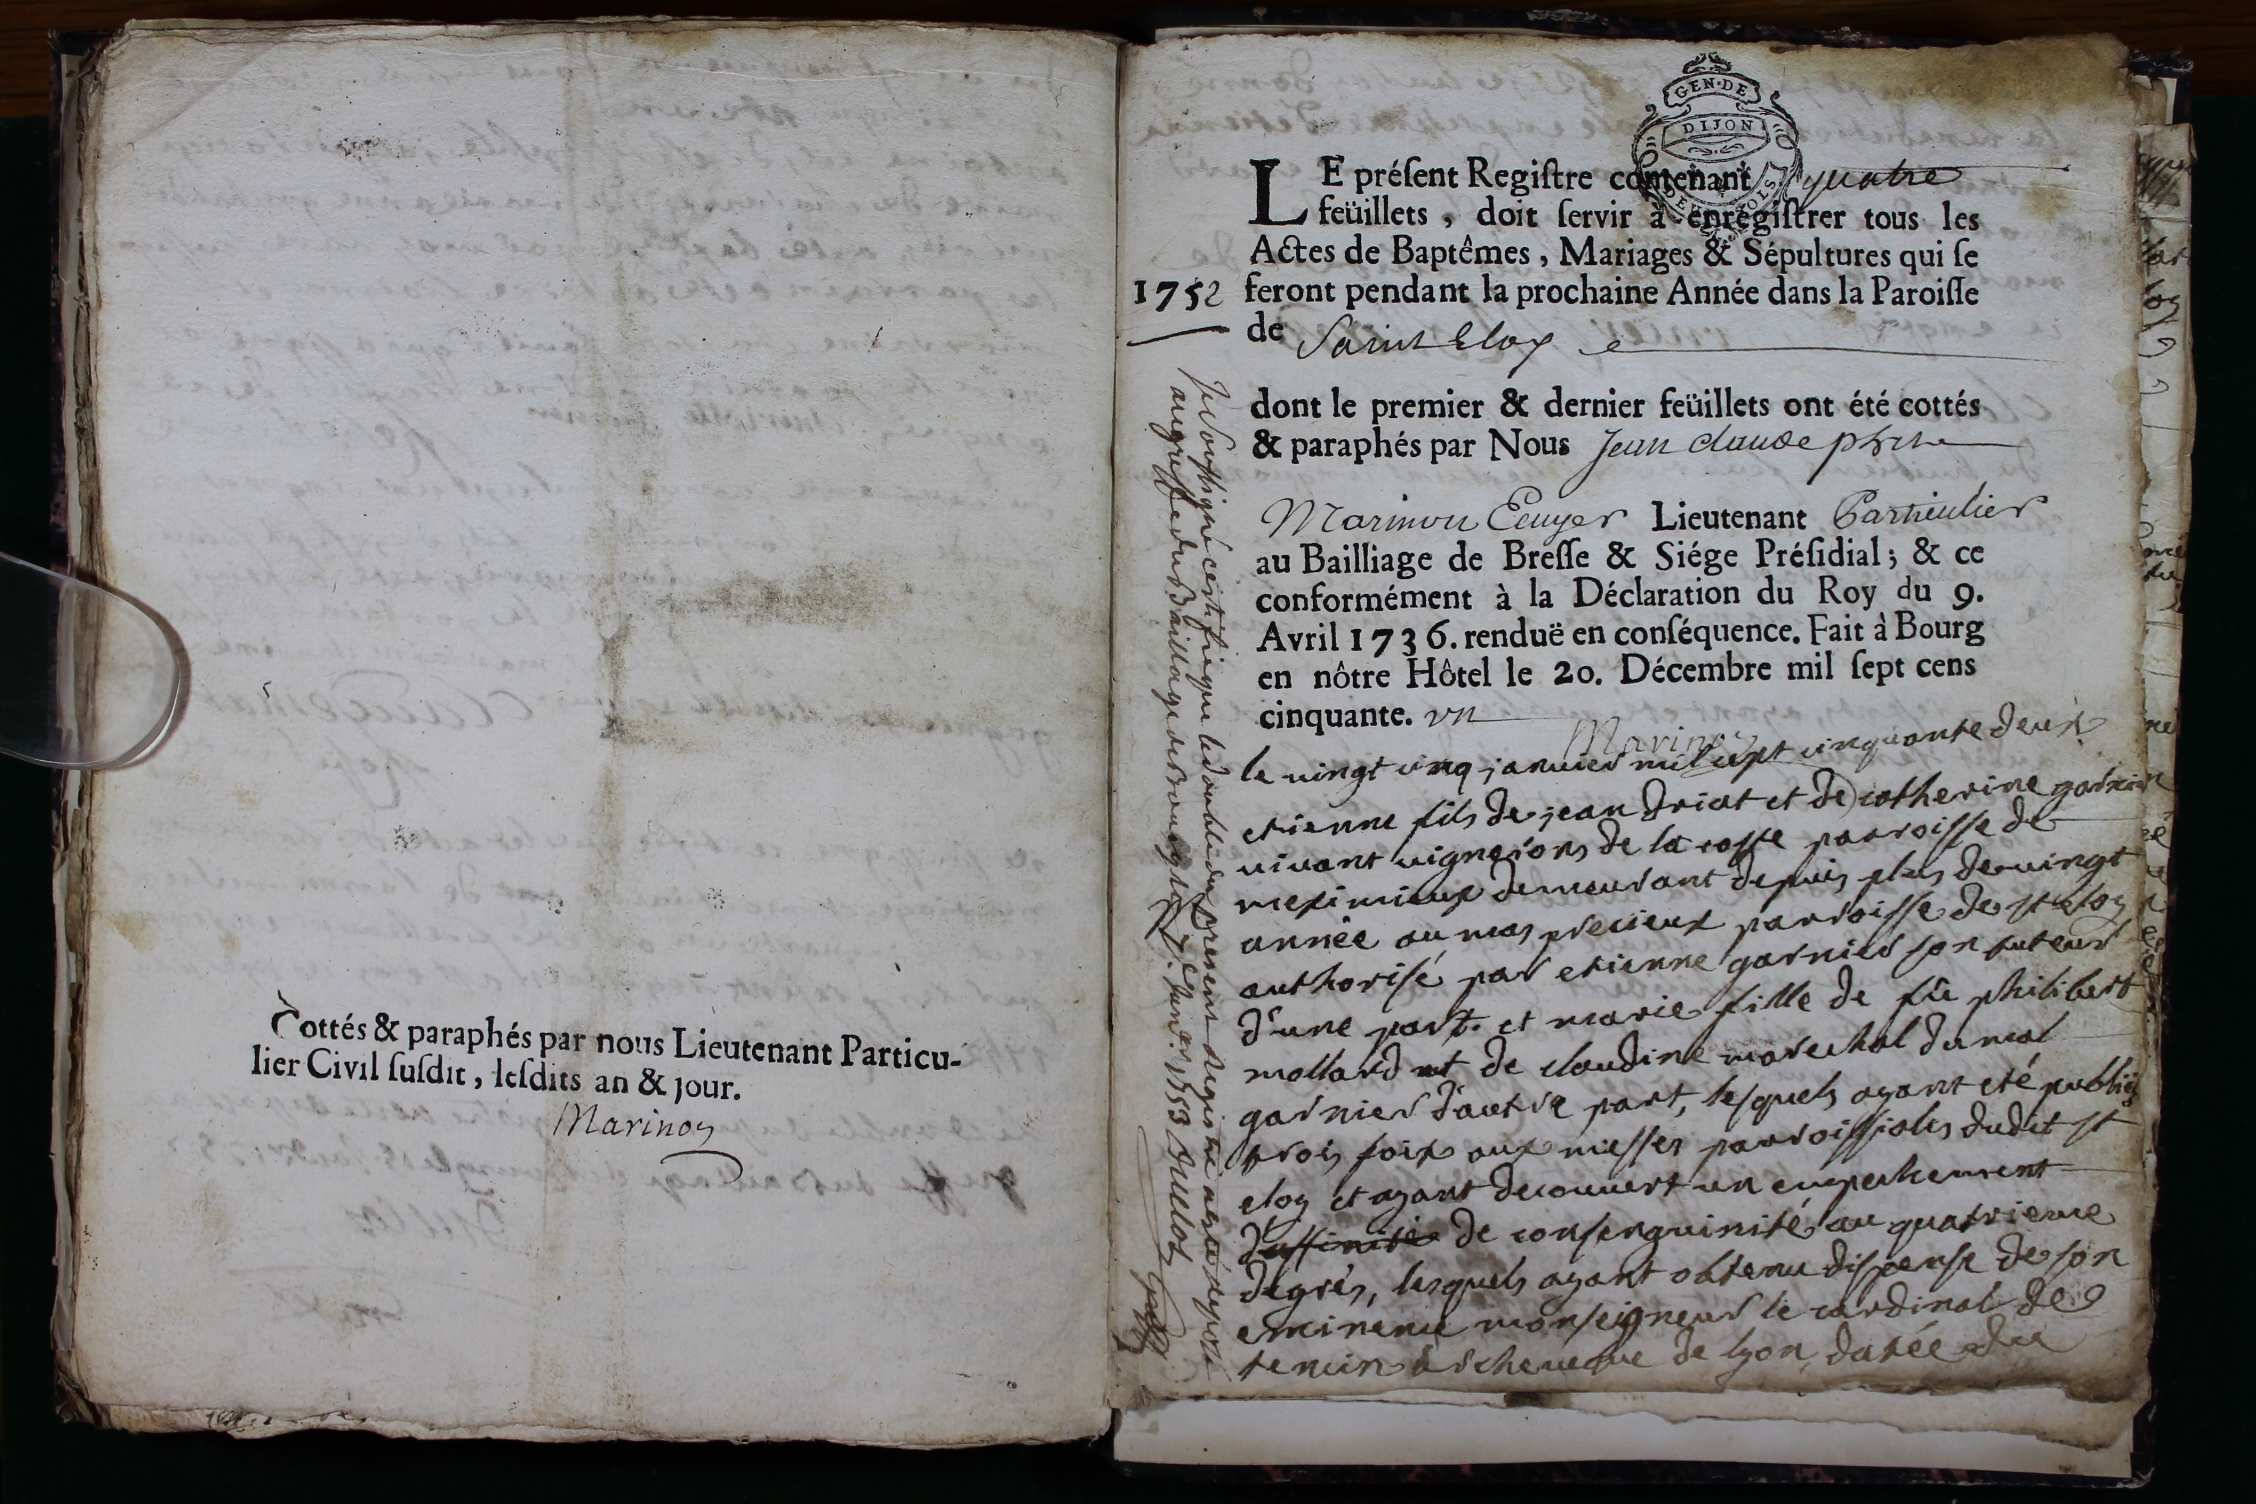 Cottés & paraphés par nous Lieutenant Particu-
lier Civil ſuſdit, leſdits an & jour.
Marinon
GEN·DE
DIJON
LE préſent Regiſtre contenant quatre
feüillets, doit ſervir à enregiſtrer tous les
Actes de Baptêmes, Mariages & Sépultures qui ſe
1752 feront pendant la prochaine Année dans la Paroiſſe
de Saint Eloy
dont le premier & dernier feüillets ont été cottés
& paraphés par Nous Jean Claude
Marinon Ecuyer Lieutenant Particulier
au Bailliage de Breſſe & Siége Préſidial; & ce
conformément à la Déclaration du Roy du 9.
Avril 1736. renduë en conſéquence. Fait à Bourg
en nôtre Hôtel le 20. Décembre mil ſept cens
cinquante. un
Marinon
le vingt cinq janvier mil sept cinquante deux
etienne fils de jean driat et de catherine garnier
vivant vignerons de la coste parroisse de
meximieux demeurant depuis plus de vingt
année au mas precieux parroisse de st eloy
authorisé par etienne garnier son tuteur
d'une part. et marie fille de fû philibert
mollard et de claudine marechal du mal
garnier d'autre part, lesquels ayant eté publiés
trois foix aux messes parroissiales dudit st
eloy et ayant decouvert un empechement
d'affinité de consenguinité au quatrieme
degrès, lesquels ayant obtenu dispense de son
eminence monseigneur le cardinal de
tencin archeveque de lyon, datée du
Je Soussigné certiffie que le double du present Registre a esté deposé
au greffe du Baillage de Bourg le 7. Janer. 1753